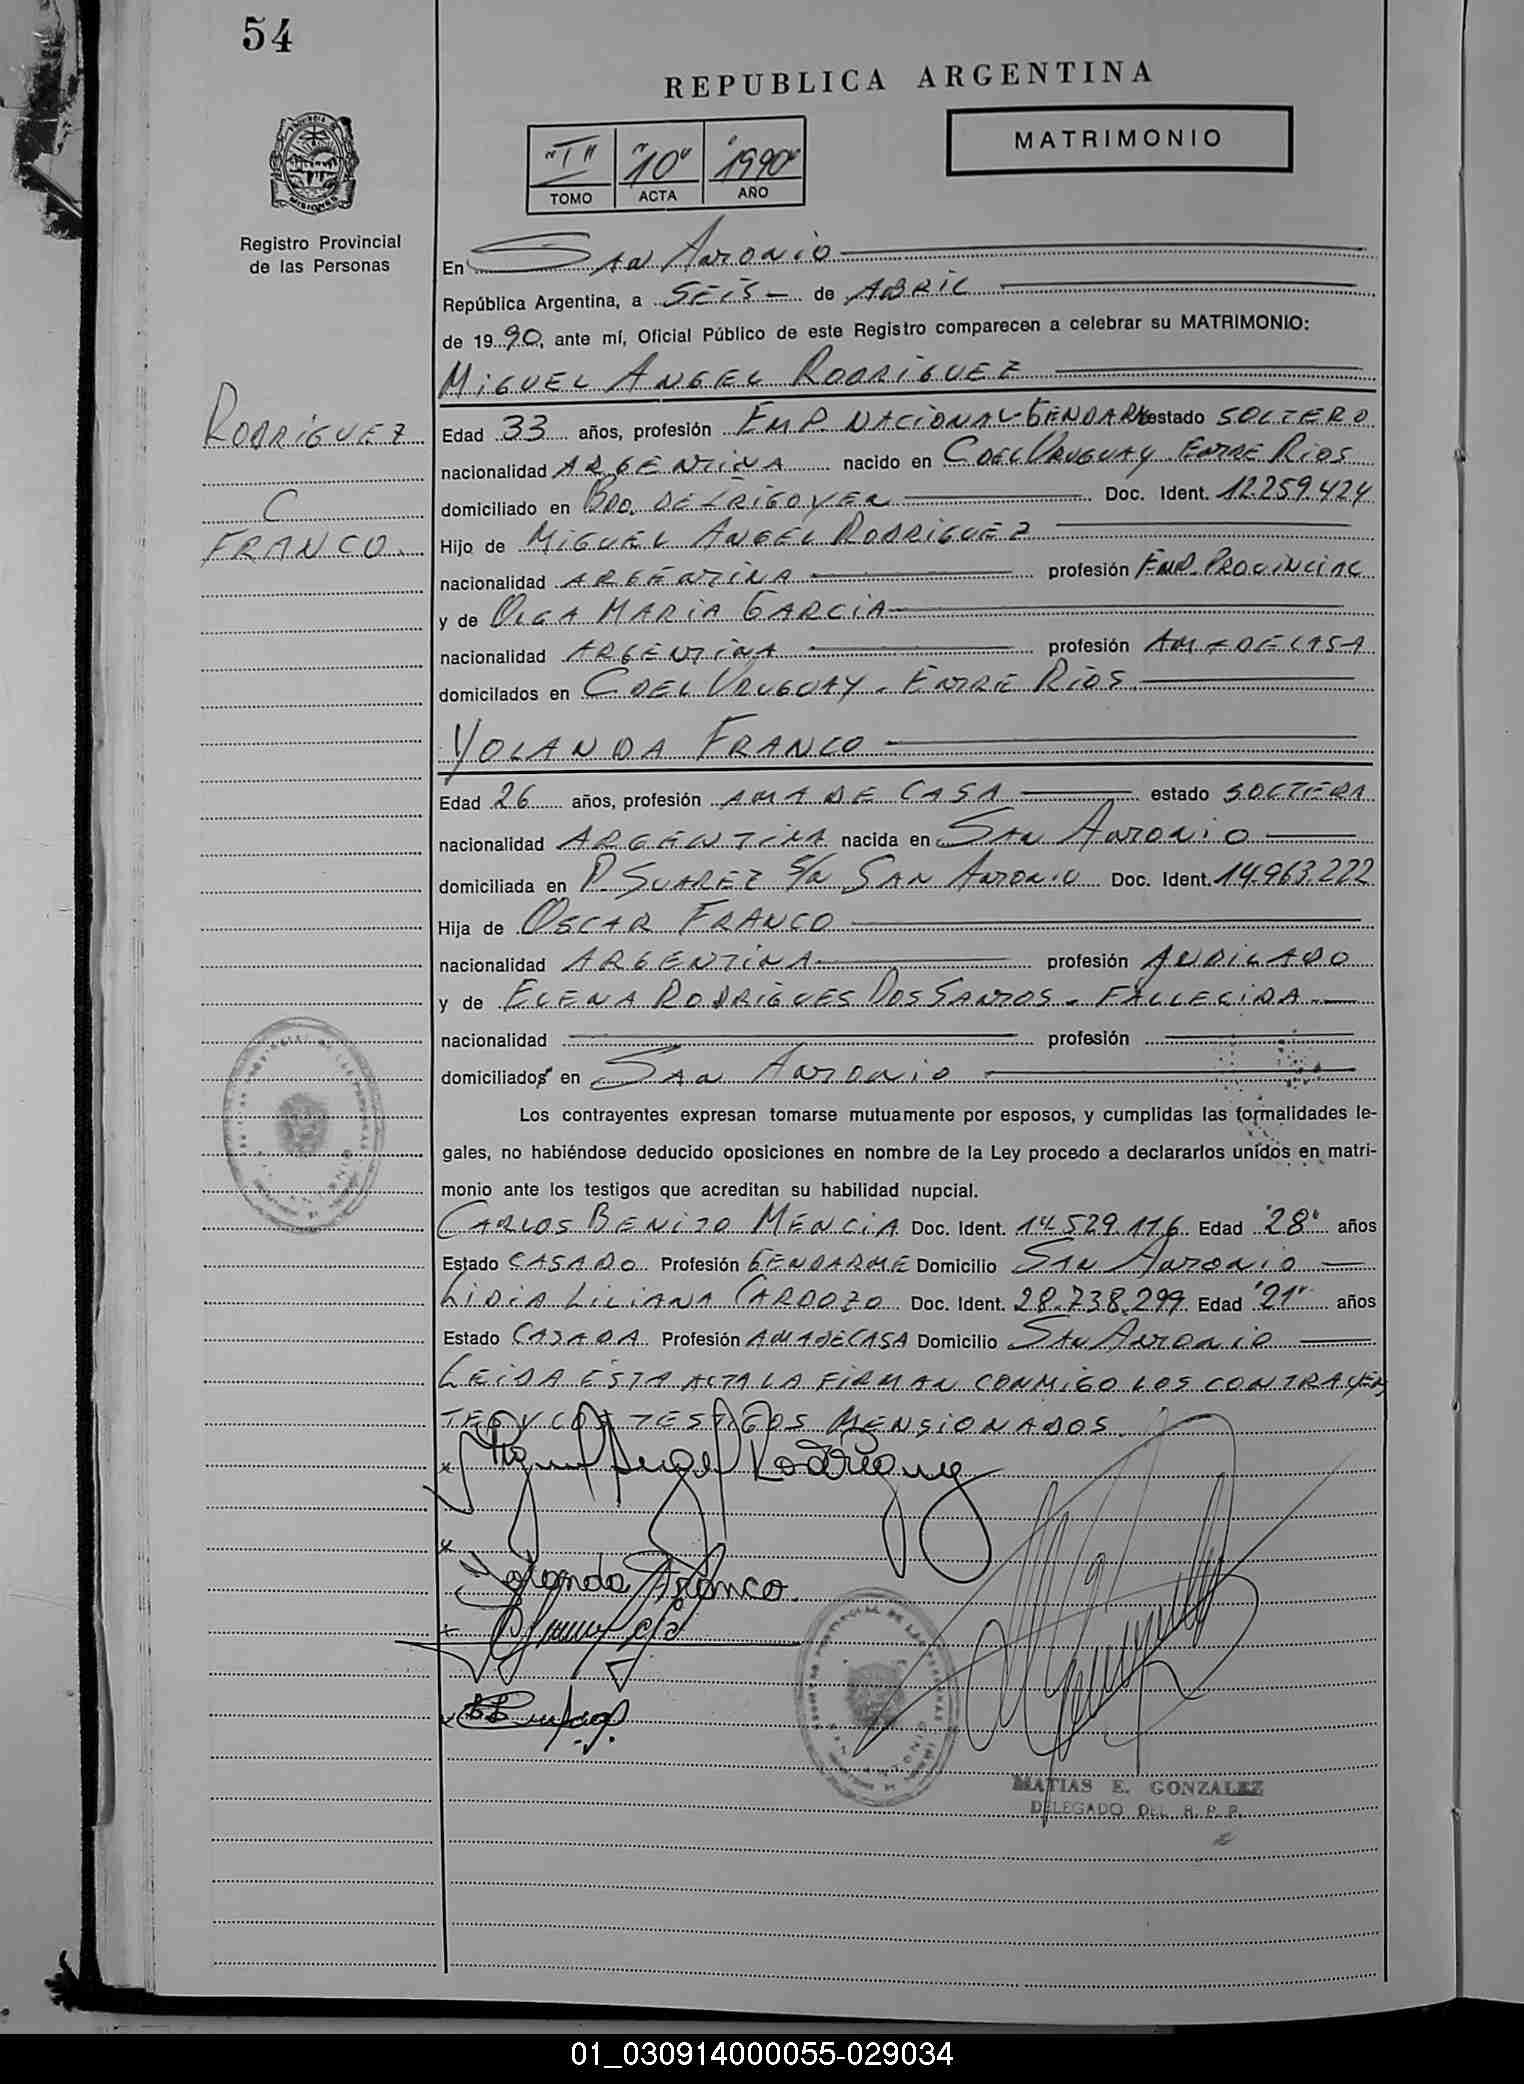 54
REPUBLICA ARGENTINA
MATRIMONIO
"I" "10" "1990"
TOMO ACTA AÑO
Registro Provincial
de las Personas
En SAN ANTONIO
República Argentina, a SEIS - de ABRIL
de 1990, ante mí, Oficial Público de este Registro comparecen a celebrar su MATRIMONIO:
MIGUEL ANGEL RODRIGUEZ
RODRIGUEZ
C
FRANCO.
Edad 33 años, profesión EMP. NACIONAL-GENDARME estado SOLTERO
nacionalidad ARGENTINA nacido en C DEL URUGUAY. ENTRE RIOS
domiciliado en BDO. DE IRIGOYEN Doc. Ident. 12.259.424
Hijo de MIGUEL ANGEL RODRIGUEZ
nacionalidad ARGENTINA profesión EMP. PROVINCIAL
y de OLGA MARIA GARCIA
nacionalidad ARGENTINA profesión AMA DE CASA
domicilados en C DEL URUGUAY. ENTRE RIOS
YOLANDA FRANCO
Edad 26 años, profesión AMA DE CASA estado SOLTERA
nacionalidad ARGENTINA nacida en SAN ANTONIO
domiciliada en P. SUAREZ S/N SAN ANTONIO Doc. Ident. 14.963.222
Hija de OSCAR FRANCO
nacionalidad ARGENTINA profesión JUBILADO
y de ELENA RODRIGUES DOS SANTOS. FALLECIDA
nacionalidad profesión
domiciliados en SAN ANTONIO
Los contrayentes expresan tomarse mutuamente por esposos, y cumplidas las formalidades le-
gales, no habiéndose deducido oposiciones en nombre de la Ley procedo a declararlos unidos en matri-
monio ante los testigos que acreditan su habilidad nupcial.
CARLOS BENITO MENCIA Doc. Ident. 14.529.116 Edad "28" años
Estado CASADO Profesión GENDARME Domicilio SAN ANTONIO
LIDIA LILIANA CARDOZO Doc. Ident. 28.738.299 Edad "21" años
Estado CASADA Profesión AMA DE CASA Domicilio SAN ANTONIO
LEIDA ESTA ACTA LA FIRMAN CONMIGO LOS CONTRAYEN
TES Y LOS TESTIGOS MENSIONADOS.
Miguel Angel Rodriguez
Yolanda Franco
MATIAS E. GONZALEZ
DELEGADO DEL R. P. P.
01_030914000055-029034